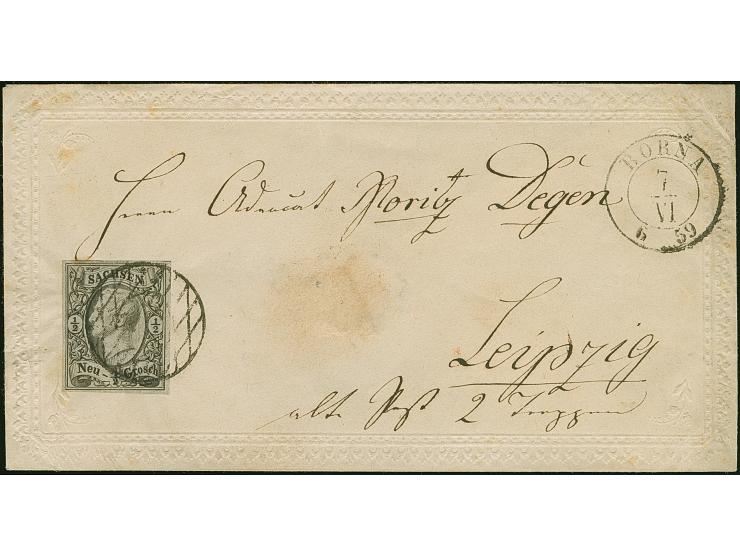 BORNA
7
VI
6 59
Herrn Advocat Moritz Degen
SACHSEN
½ ½
Neu-Grosch
Leipzig
alte Post 2 Treppen